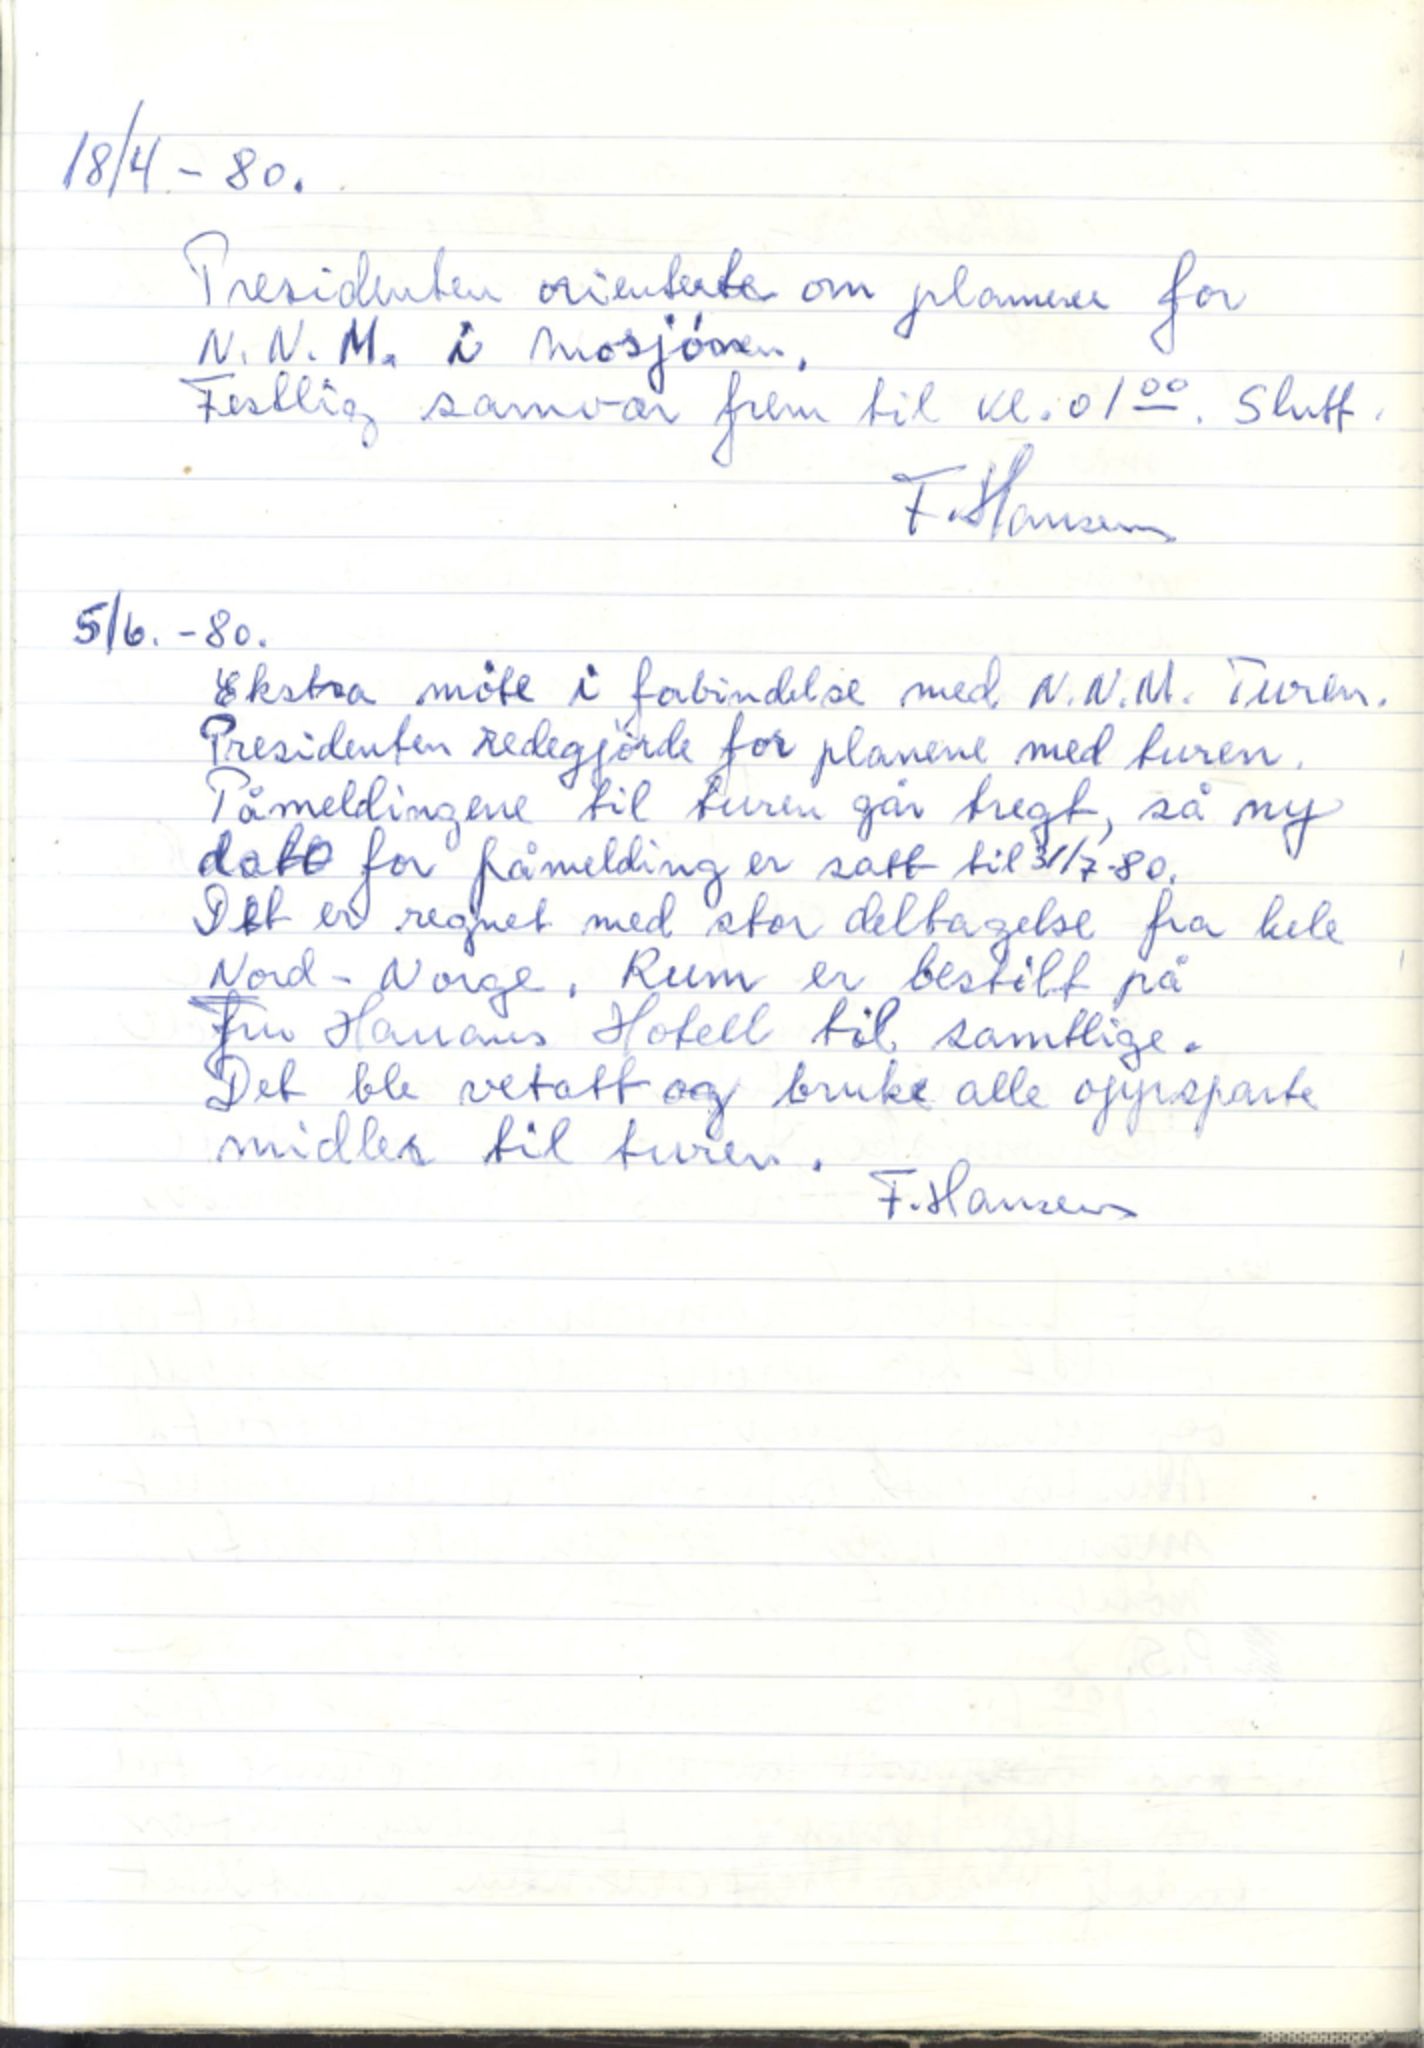 18/4 - 80.
Presidenten orienterte om planene for
N. N. M. i Mosjöen.
Festlig samvær frem til kl. 01 00. Slutt.
F. Hansen
5/6. - 80.
Ekstra möte i forbindelse med N.N.M. Turen.
Presidenten redegjörde for planene med turen.
Påmeldingene til turen går tregt, så ny
dato for påmelding er satt til 31/7-80.
Det er regnet med stor deltagelse fra hele
Nord - Norge. Rum er bestilt på
Fru Haugans Hotell til samtlige.
Det ble vetatt og bruke alle oppsparte
midler til turen.
F. Hansen